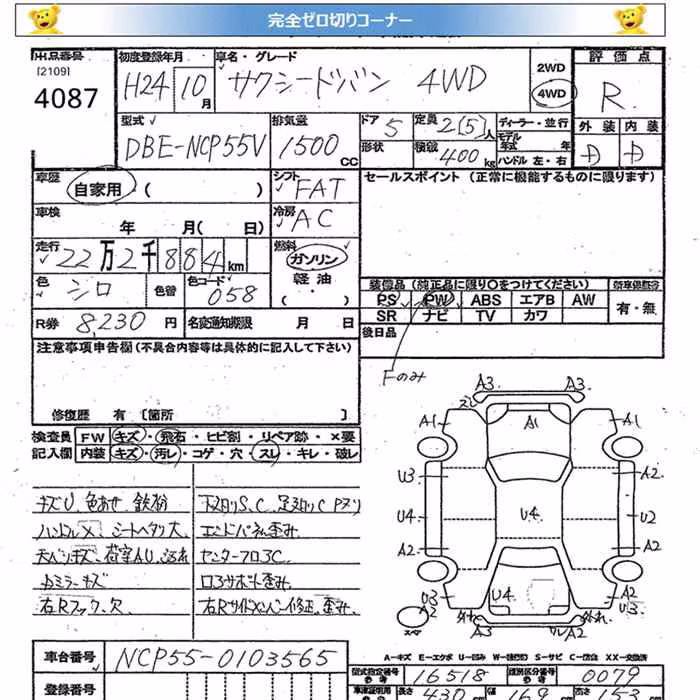 完全ゼロ切りコーナー
出品番号
[2109]
4087
初度登録年月
H24 10月
車名・グレード
サクシードバン 4WD
2WD
4WD
評価点
R
外装 内装
D D
型式
DBE-NCP55V
排気量
1500 CC
ドア 5
定員 2(5)人
形状
積載 400 kg
ディーラー・並行
モデル年式 年
ハンドル 左・右
車歴
自家用 ( )
シフト FAT
セールスポイント (正常に機能するものに限ります)
車検
年 月( 日)
冷房 AC
走行
22万2千884km
燃料
ガソリン
軽油
色 シロ
色替
色コード 058
装備品 (純正品に限り○をつけてください)
PS PW ABS エアB AW
SR ナビ TV カワ
有・無
R券 8,230 円
名変通知期限 月 日
後日品
注意事項申告欄 (不具合内容等は具体的に記入して下さい)
Fのみ
修復歴 有 [箇所 ]
検査員
記入欄
FW キズ・飛石・ヒビ割・リペア跡・×要
内装 キズ・汚レ・コゲ・穴・スレ・キレ・破レ
キズU、色あせ、鉄粉
下廻りS、C 足廻りC Pヌリ
ハンドルX、シートヘタリ大
エンドパネ歪み
天ベンキズ、荷室AU、
センターフロアC
ミラーキズ
コアサポート歪み
右Rフック欠
右Rサイドメンバー修正、歪み
A3 A3
スレ
A1 A1 A1
U3 A2
U4 U4 U2
A2 A2
U3 A2 U4 U3 A2
外れ 外れ
スペア
ワレA2
A-キズ E-エクボ U-凹み W-(波打) S-サビ C-腐蝕 XX-交換済
車台番号
NCP55-0103565
型式指定番号
参考
16518
類別区分番号
参考
0079
登録番号
長さ 430 cm